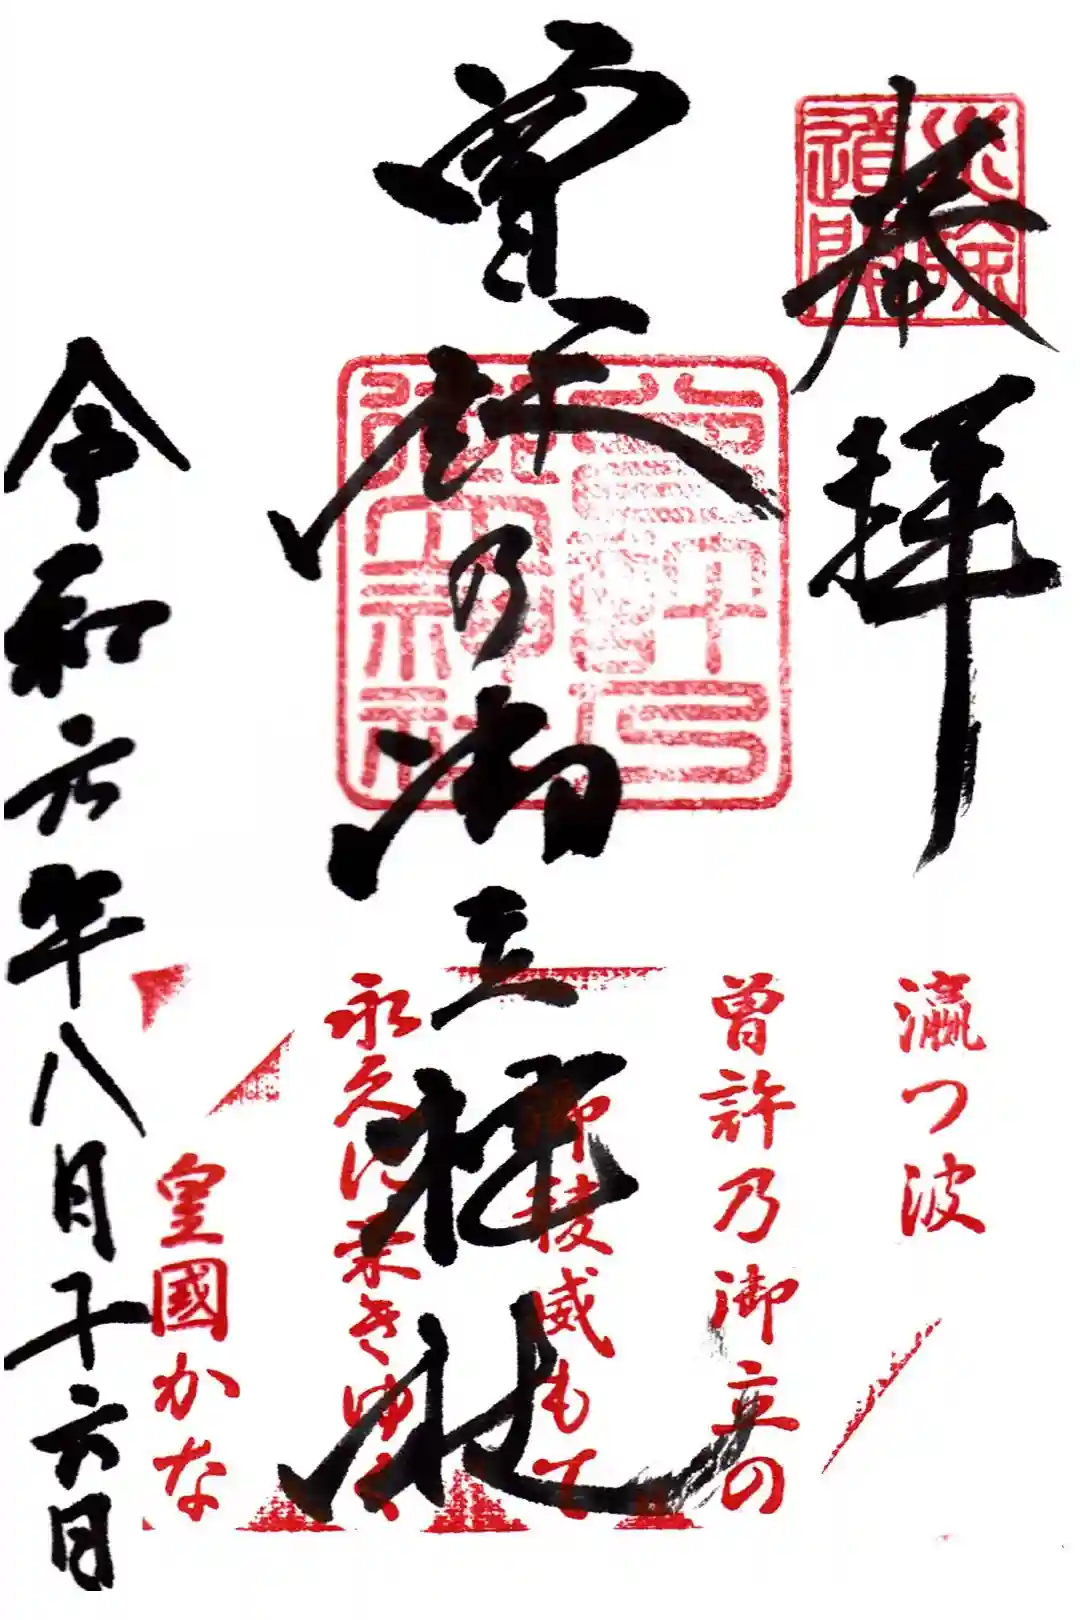 奉拝
曽許乃御立神社
令和六年八月十六日
瀛つ波
曽許乃御立の
御稜威もて
永久に栄きゆく
皇國かな
曽許乃
御立神社